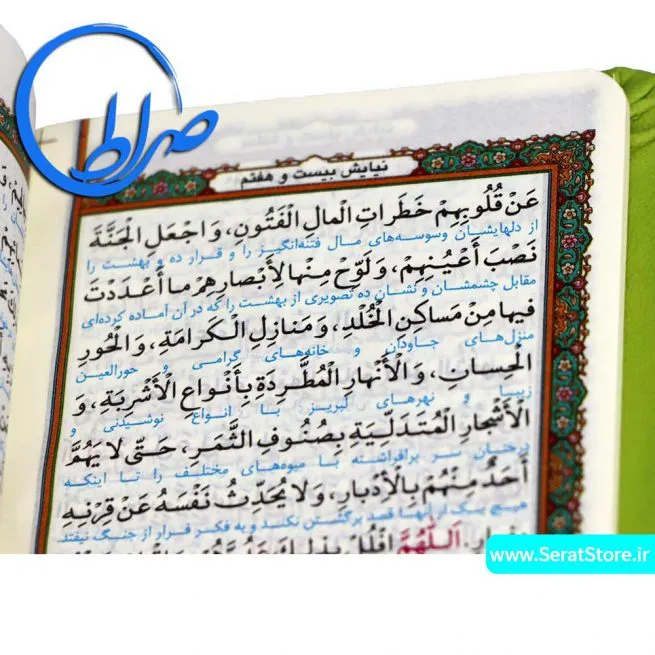 صراط
نیایش بیست و هفتم
عَنْ قُلُوبِهِمْ خَطَراتِ الْمالِ الْفَتُونِ، وَ اجْعَلِ الْجَنَّةَ
از دلهایشان وسوسه‌های مال فتنه‌انگیز را و قرار ده و بهشت را
نَصْبَ أَعْيُنِهِمْ، وَ لَوِّحْ مِنْها لِأَبْصارِهِمْ ما أَعْدَدْتَ
مقابل چشمشان و نشان ده تصویری از بهشت را که در آن آماده کرده‌ای
فيها مِنْ مَساكِنِ الْخُلْدِ، وَ مَنازِلِ الْكَرامَةِ، وَ الْحُورِ
منزل‌های جاودان و خانه‌های گرامی و حورالعین
الْحِسانِ، وَ الْأَنْهارِ الْمُطَّرِدَةِ بِأَنْواعِ الْأَشْرِبَةِ، وَ
زیبا و نهرهای لبریز با انواع نوشیدنی و
الْأَشْجارِ الْمُتَدَلِّيَةِ بِصُنُوفِ الثَّمَرِ، حَتّى لا يَهُمَّ
درختان سر برافراشته با میوه‌های مختلف را تا اینکه
أَحَدٌ مِنْهُمْ بِالْأِدْبارِ، وَ لا يُحَدِّثَ نَفْسَهُ عَنْ قِرْنِهِ
هیچ یک از آنها قصد برگشتن نکند و به فکر فرار از جنگ نیفتد.
اَللّهُمَّ افْلُلْ بِذلِكَ
www.SeratStore.ir